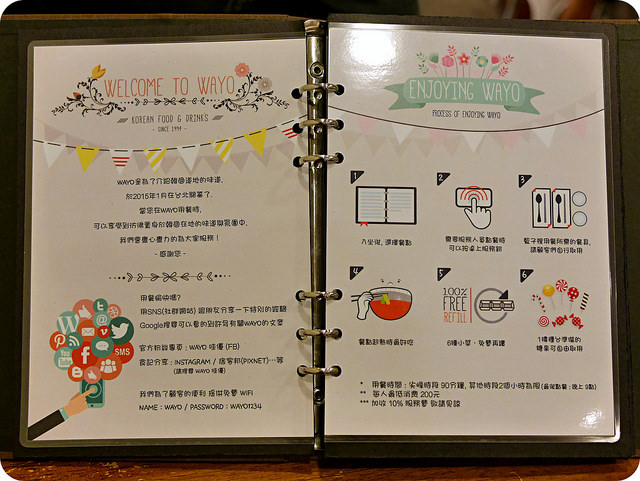 WELCOME TO WAYO
KOREAN FOOD & DRINKS
- SINCE 1994 -
WAYO是為了介紹韓國道地的味道,
於2015年1月在台北開幕了.
當您在WAYO用餐時,
可以享受到彷彿置身於韓國在地的味道與氛圍中.
我們會盡心盡力的為大家服務!
- 感謝您 -
用餐愉快嗎?
用SNS(社群網站) 跟朋友分享一下特別的經驗
Google搜尋可以看的到許多有關WAYO的文章
官方粉絲專頁: WAYO 哇優 (FB)
食記分享: INSTAGRAM / 痞客邦(PIXNET)…等
(請搜尋 WAYO 哇優)
我們為了顧客的便利 提供免費 WIFI
NAME: WAYO / PASSWORD: WAYO1234
W
t
P
f
You
Tube
B
SMS
ENJOYING WAYO
PROCESS OF ENJOYING WAYO
1
入坐後, 選擇餐點
2
需要服務人員點餐時
可以按桌上服務鈴
3
籃子裡用餐所需的餐具,
請顧客們自行取用
4
餐點趁熱時最好吃
5
100%
FREE
REFILL
6種小菜, 免費再續
6
1樓櫃台準備的
糖果可自由取用
* 用餐時間: 尖峰時段 90分鐘, 其他時段2個小時為限(最後點餐: 晚上 9點)
** 每人最低消費 200元
*** 加收 10% 服務費 敬請見諒